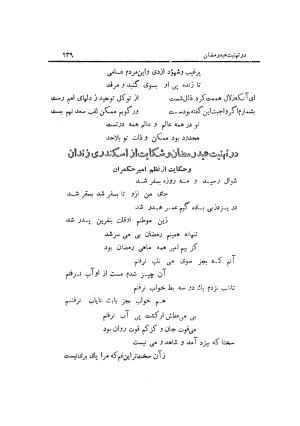 در تهنیت عید رمضان ۲۳۹
برغیب وشهود ازدی واین مردم عامی
تا زنده پی او بسوی گنبد و مرقد
ای آنکه زلال هممت کرد دلالت از توکل توحید ز دلهای امم رست
بشمارم اگر واجبت این گفته بود سست ورگویم ممکن لقب سعد نهم بست
تو در همه عالم و عالم همه در تست
محدود بود ممکن و ذات تو بلاحد
در تهنیت عید رمضان و شکایت از اسکندری زندان
وحکایت از نظم امیر حکمران
شوال رسید و مه روزه بسفر شد
جای من نزد تا بسفر شد بسقر شد
در دزدی بباده گیم عمر هدر شد
زین موطنم اوقات بنفرین پدر شد
تنها نه همین رمضان بی می سرشد
کز بیم امیر همه ماهی رمضان بود
آنم که بجز سوی می ناب نرفتم
آن چیز شدم مست از او آب نرفتم
تا نزدم یک دو سه بط خواب نرفتم
هم خواب بجز بابت نایاب نرفتم
بی می بمثل ار کشت پی آب نرفتم
می قوت جان و کز کم قوت روان بود
سختا که بیزد آمد و شاهد و می نیست
زآن سخت تر این غم که مرا یا ی بری نیست